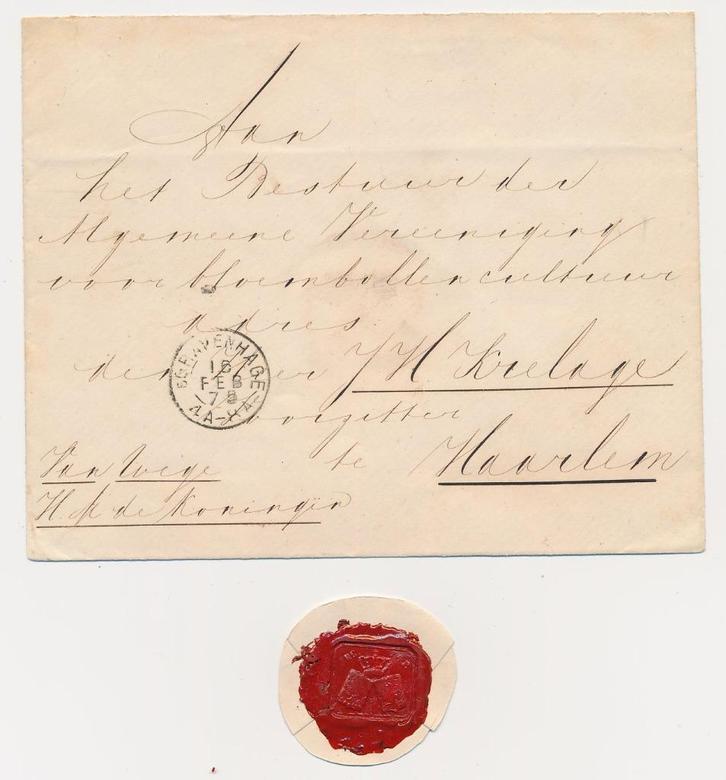 Aan
het Bestuur der
Algemeene Vereeniging
voor bloembollencultuur
adres
den Heer J H Krelage
voorzitter
te Haarlem
Van wege
H. M. de Koningin
'SGRAVENHAGE
15
FEB
75